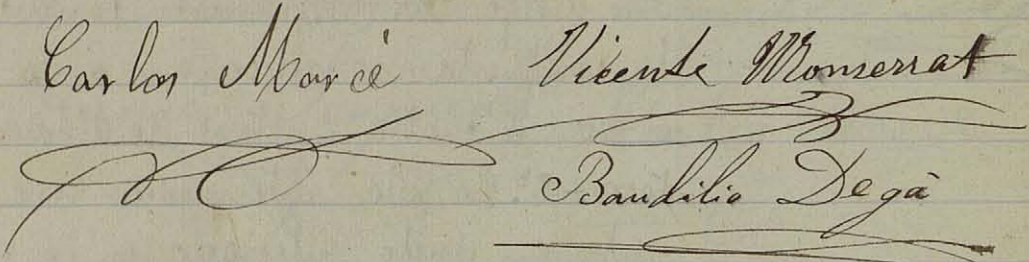 Carlos Marcé Vicente Monserrat
Baudilio Degà